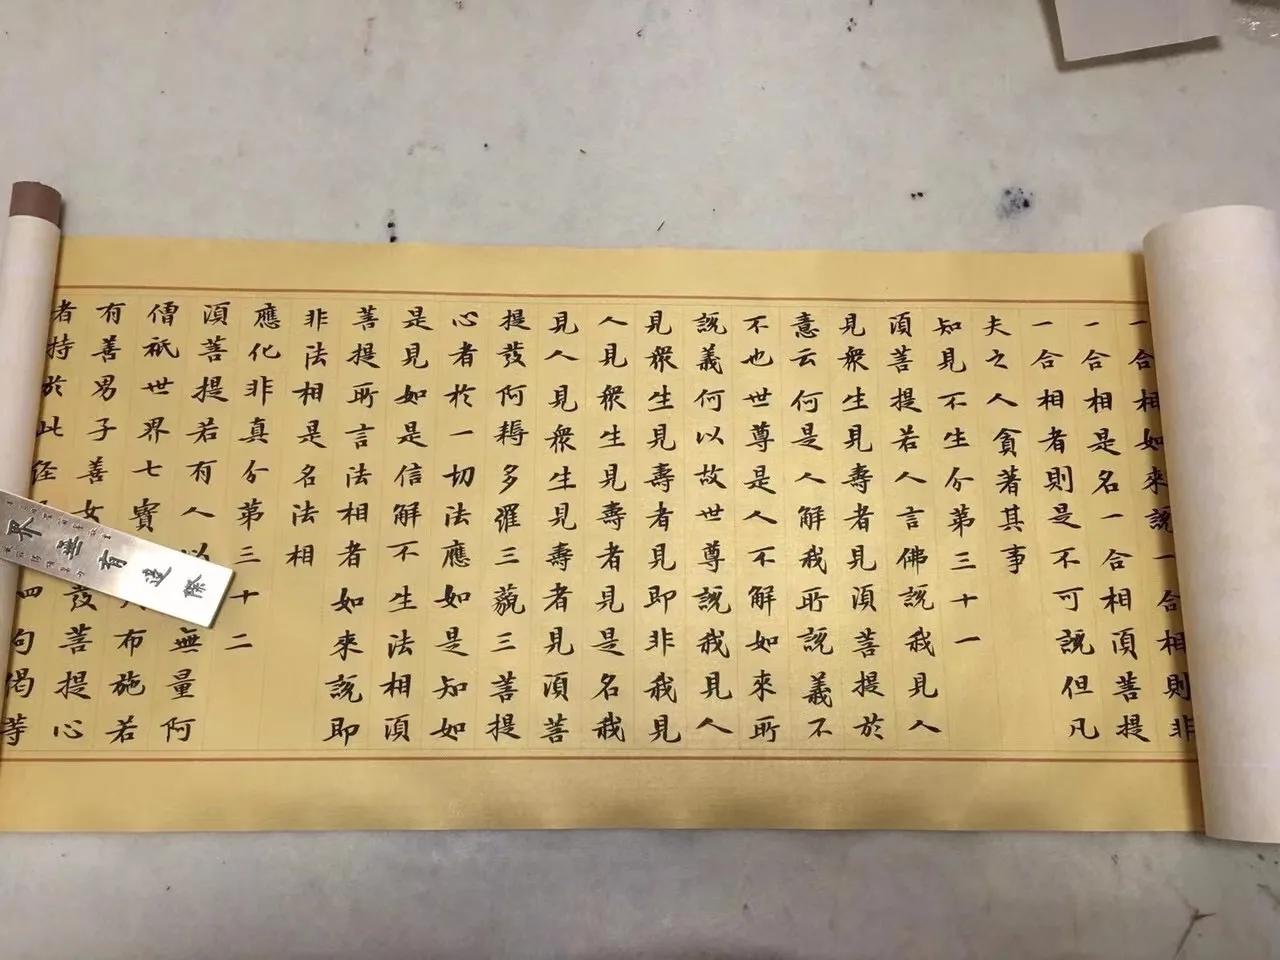 一合相如來說一合相則非
一合相是名一合相須菩提
一合相者則是不可說但凡
夫之人貪著其事
知見不生分第三十一
須菩提若人言佛說我見人
見衆生見壽者見須菩提於
意云何是人解我所說義不
不也世尊是人不解如來所
說義何以故世尊說我見人
見衆生見壽者見即非我見
人見衆生見壽者見是名我
見人見衆生見壽者見須菩
提發阿耨多羅三藐三菩提
心者於一切法應如是知如
是見如是信解不生法相須
菩提所言法相者如來說即
非法相是名法相
應化非真分第三十二
須菩提若有人以無量阿
僧祇世界七寶布施若
有善男子善女發菩提心
者持於此經四句偈等